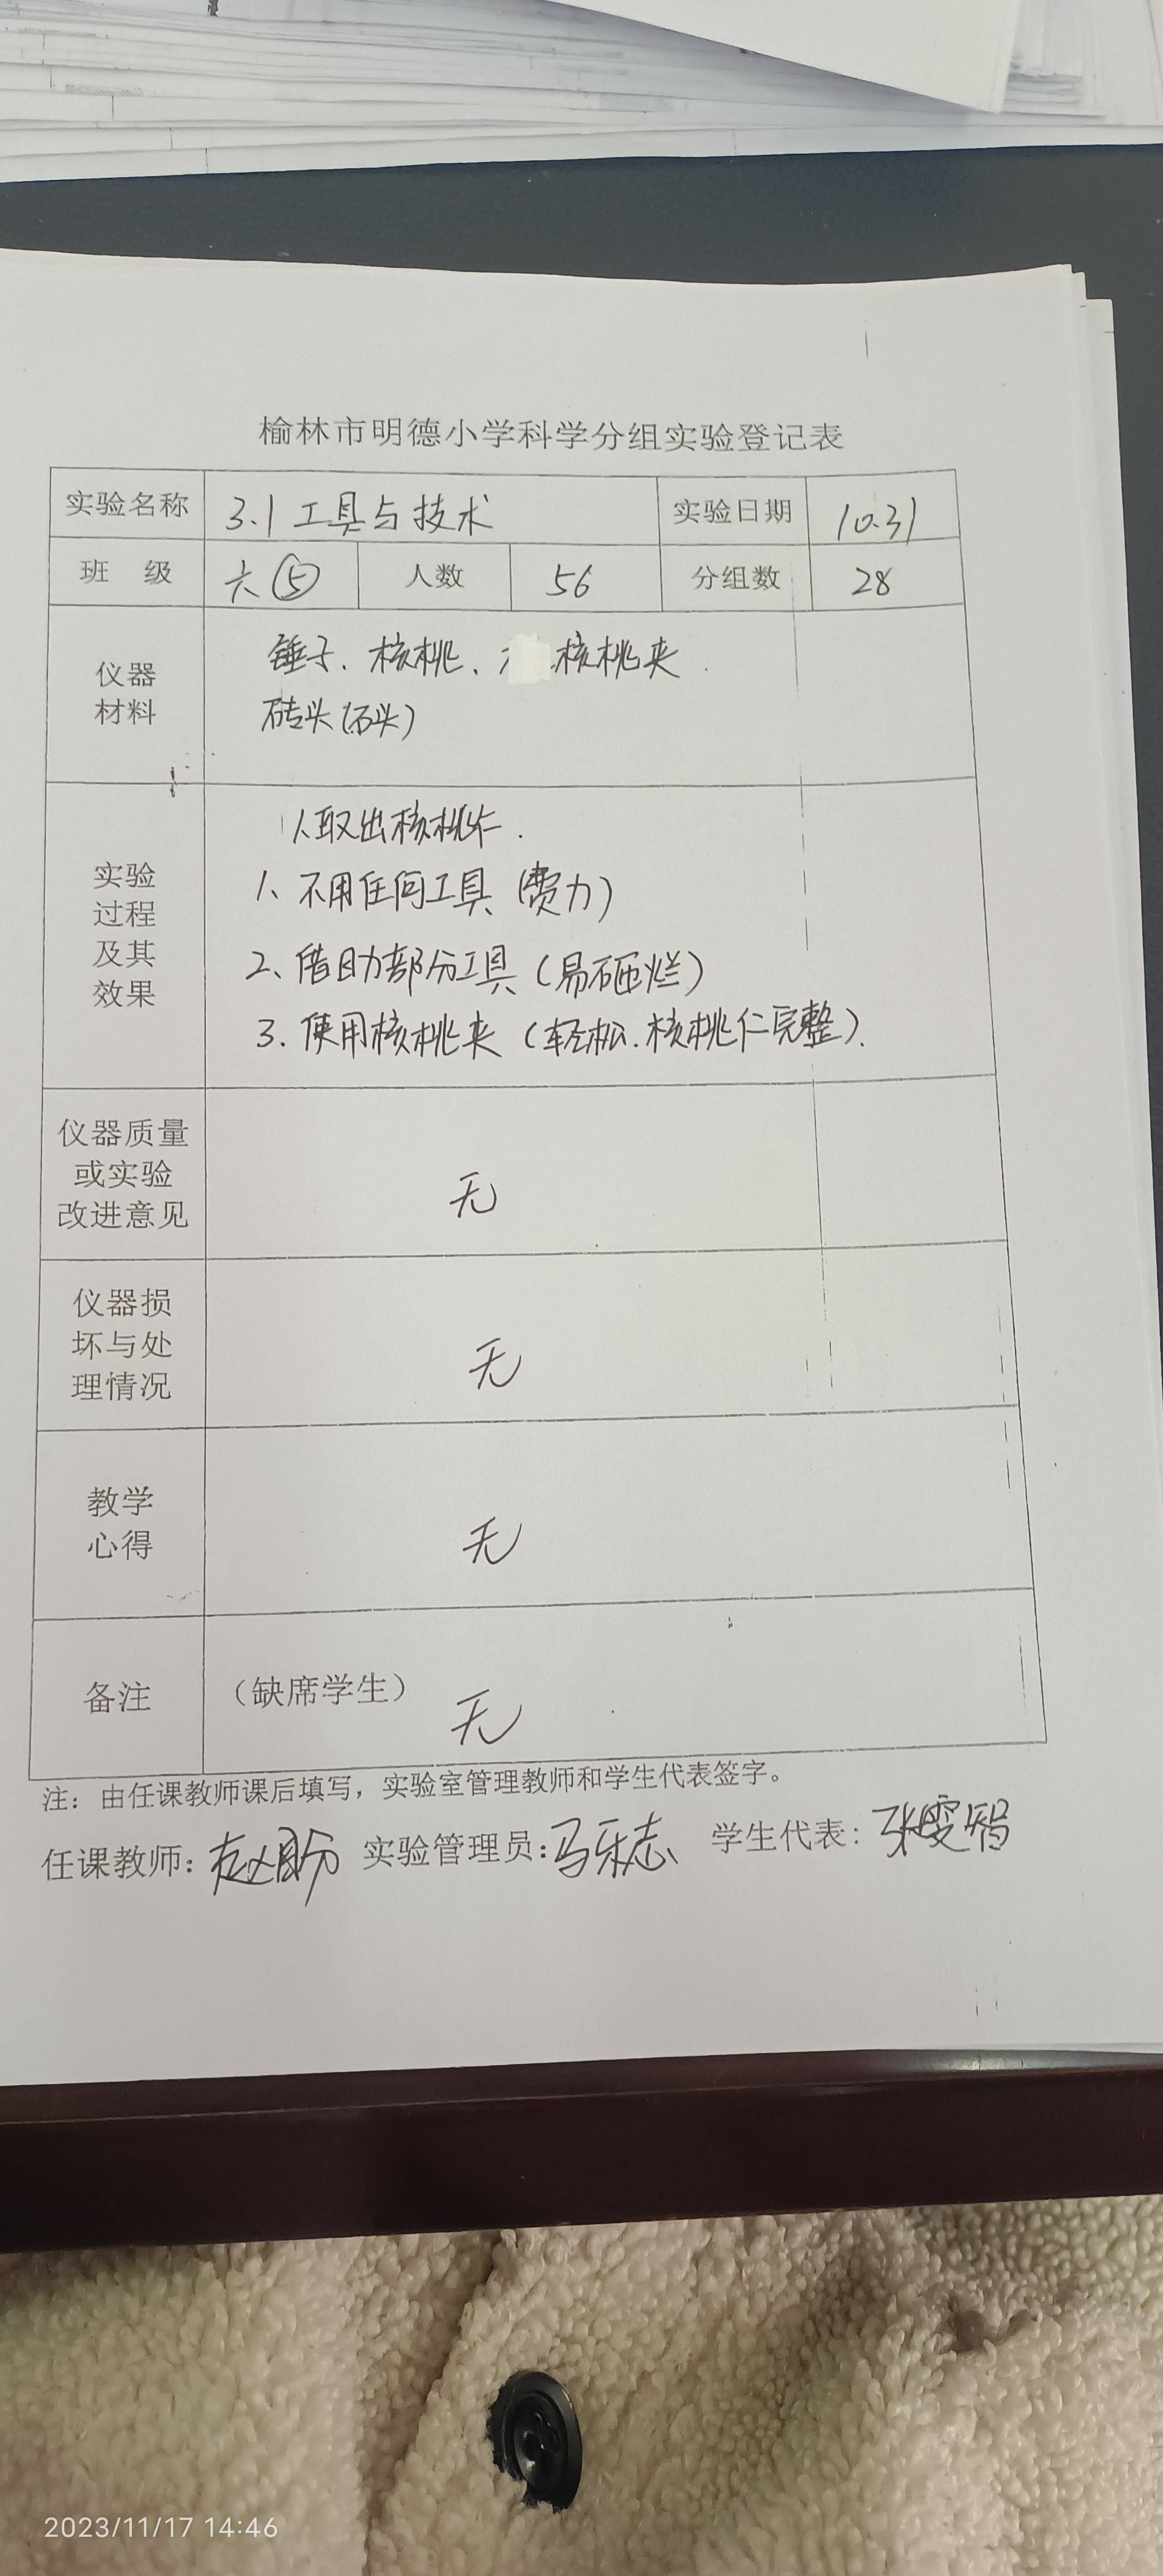 榆林市明德小学科学分组实验登记表
实验名称 3.1 工具与技术 实验日期 10.31
班 级 六⑤ 人数 56 分组数 28
仪器
材料
锤子、核桃、核桃夹
砖头(石头)
实验
过程
及其
效果
取出核桃仁.
1、不用任何工具(费力)
2、借助部分工具(易砸烂)
3.使用核桃夹(轻松.核桃仁完整).
仪器质量
或实验
改进意见
无
仪器损
坏与处
理情况
无
教学
心得
无
备注 (缺席学生) 无
注：由任课教师课后填写，实验室管理教师和学生代表签字。
任课教师: 赵盼 实验管理员: 马乐志 学生代表: 张雯
2023/11/17 14:46